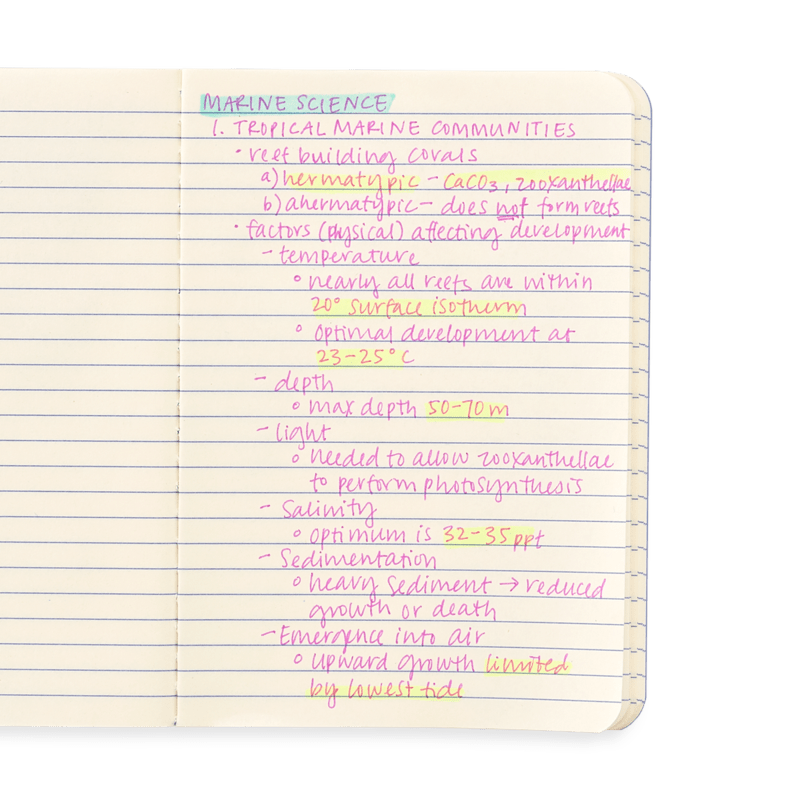 MARINE SCIENCE
1. TROPICAL MARINE COMMUNITIES
• reef building corals
a) hermatypic - CaCO3, zooxanthellae
b) ahermatypic - does not form reefs
• factors (physical) affecting development
- temperature
° nearly all reefs are within
20° surface isotherm
° optimal development at
23-25°C
- depth
° max depth 50-70m
- light
° needed to allow zooxanthellae
to perform photosynthesis
- Salinity
° optimum is 32-35ppt
- Sedimentation
° heavy sediment → reduced
growth or death
- Emergence into air
° upward growth limited
by lowest tide